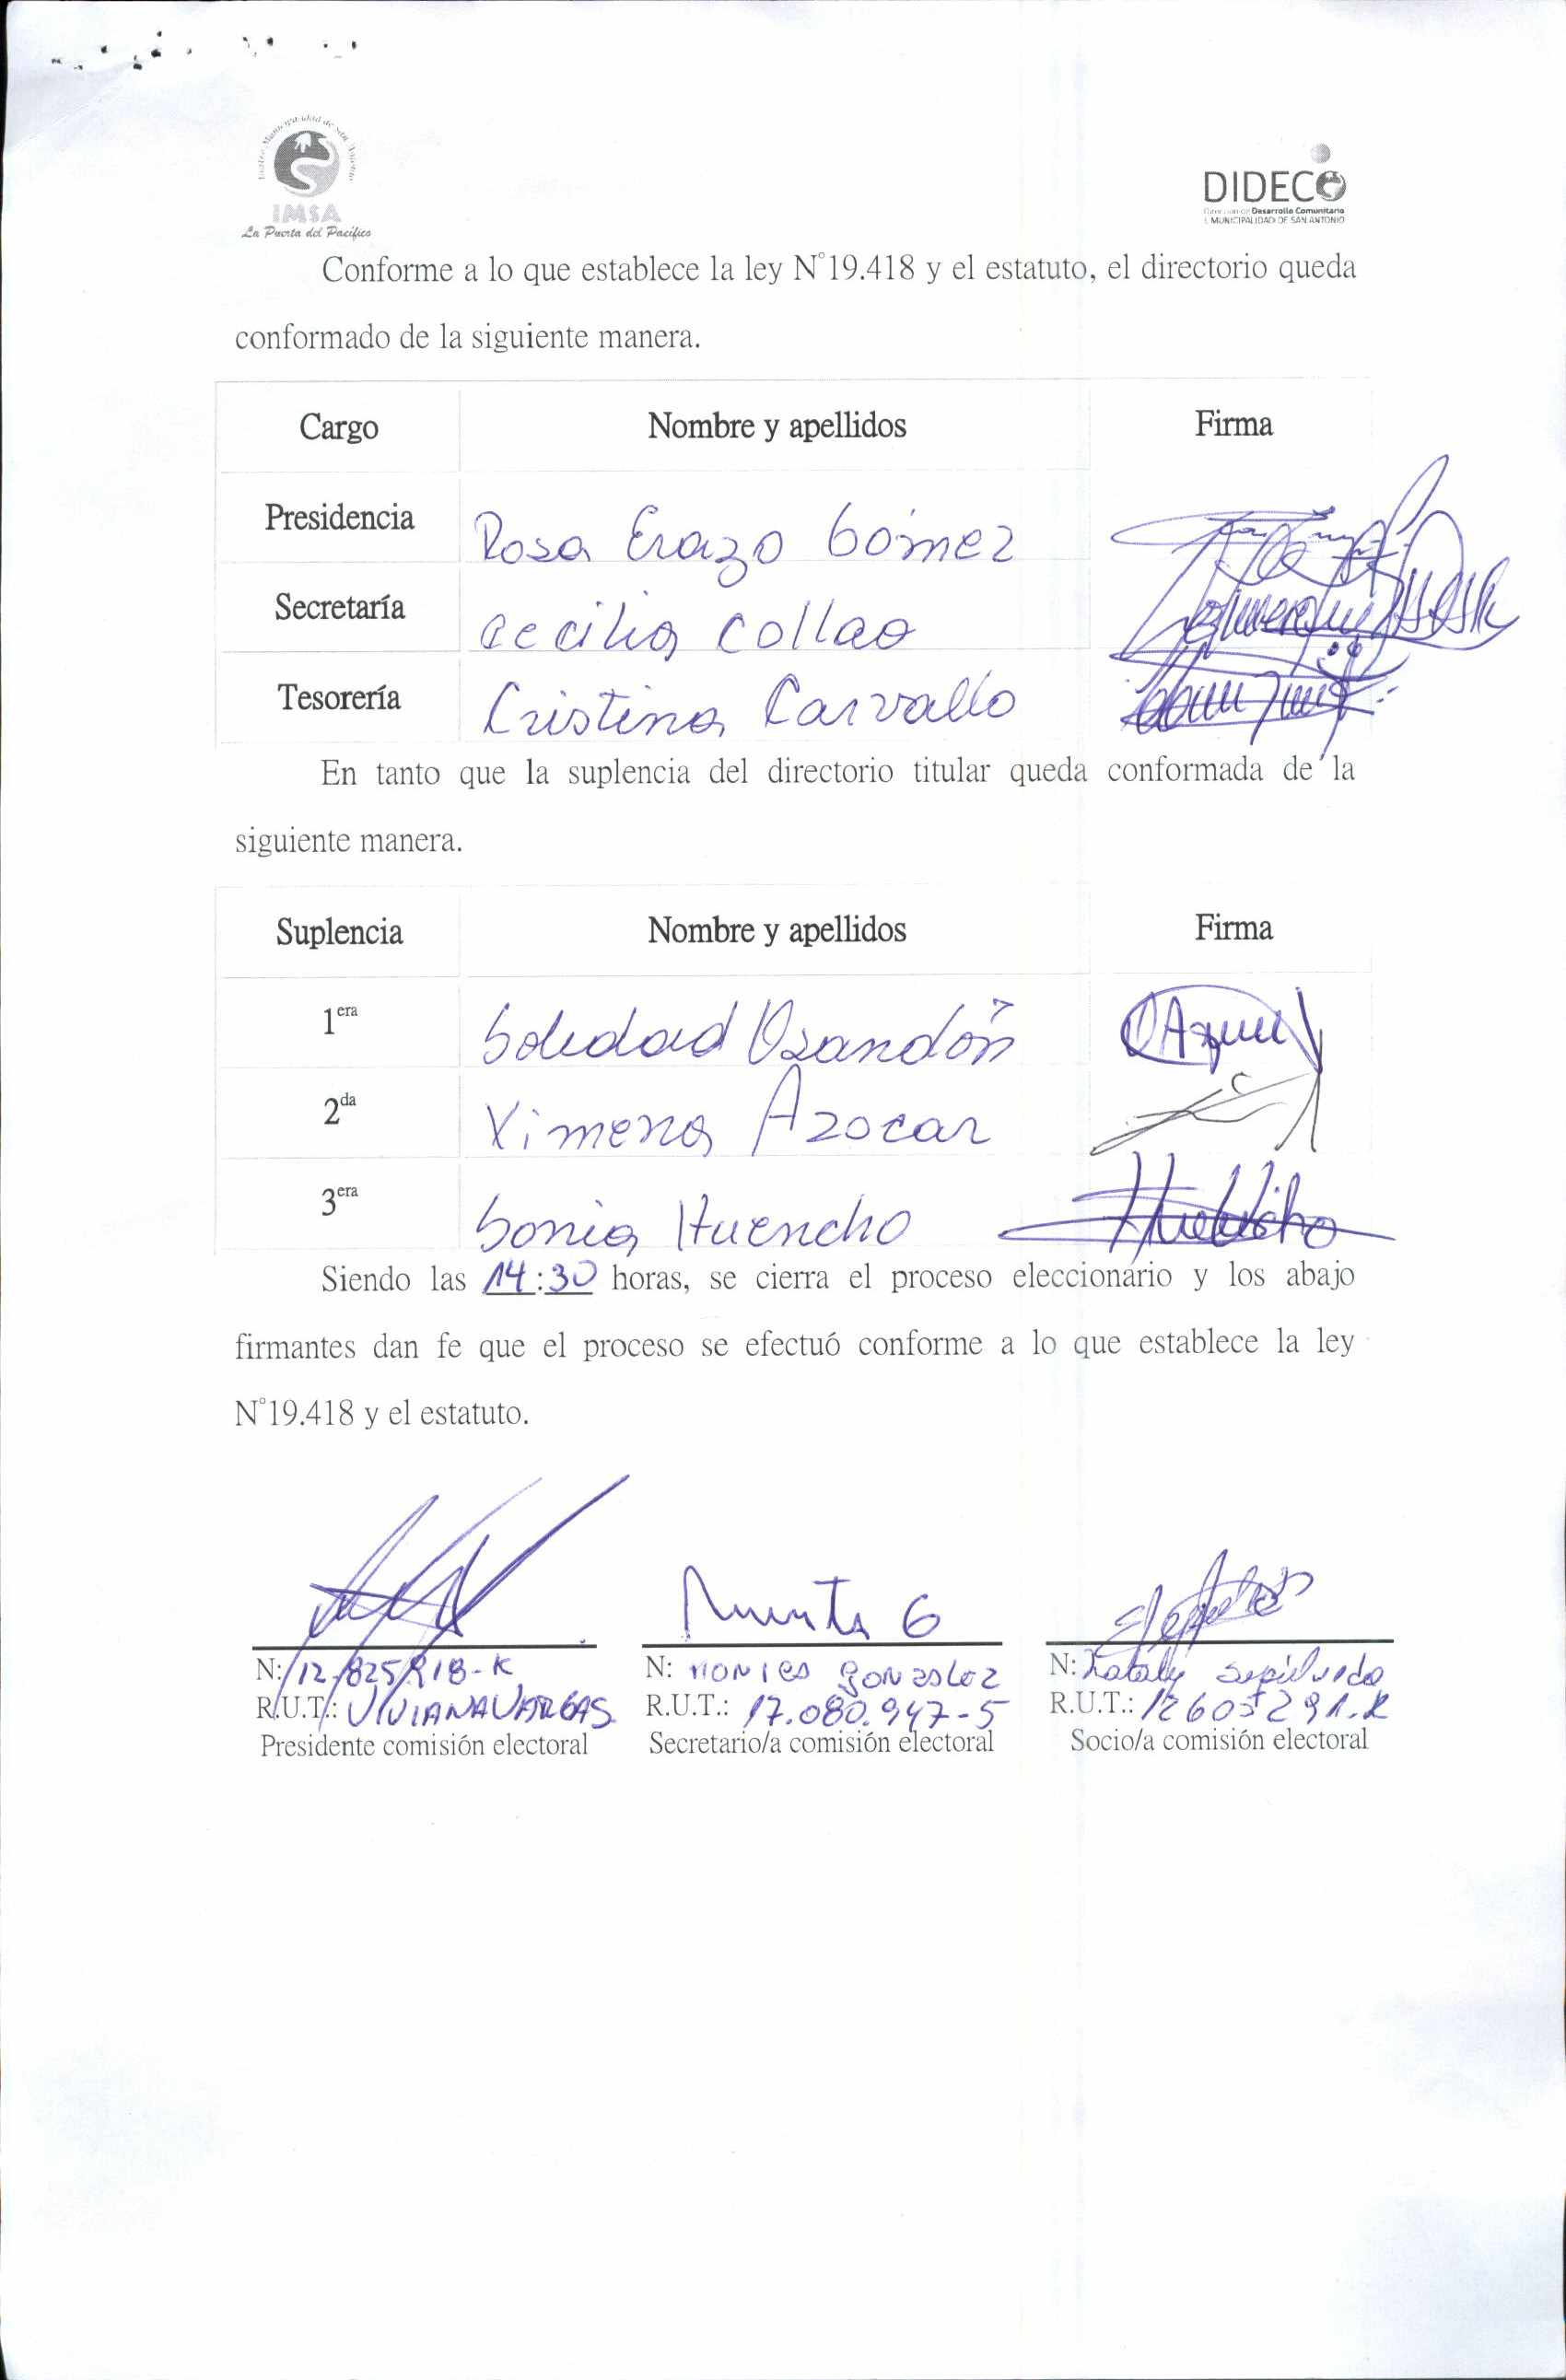 Ilustre Municipalidad de San Antonio
IMSA
La Puerta del Pacífico
DIDECO
Dirección de Desarrollo Comunitario
I. MUNICIPALIDAD DE SAN ANTONIO
Conforme a lo que establece la ley N°19.418 y el estatuto, el directorio queda
conformado de la siguiente manera.
Cargo Nombre y apellidos Firma
Presidencia Rosa Erazo Gómez
Secretaría Cecilia Collao
Tesorería Cristina Carvallo
En tanto que la suplencia del directorio titular queda conformada de la
siguiente manera.
Suplencia Nombre y apellidos Firma
1era Soledad Osandón
2da Ximena Azocar
3era Sonia Huencho
Siendo las 14:30 horas, se cierra el proceso eleccionario y los abajo
firmantes dan fe que el proceso se efectuó conforme a lo que establece la ley
N°19.418 y el estatuto.
N: 12.825.818-K N: Monica Gonzalez N: Nataly Sepúlveda
R.U.T.: VIVIANA VARGAS R.U.T.: 17.080.947-5 R.U.T.:
Presidente comisión electoral Secretario/a comisión electoral Socio/a comisión electoral